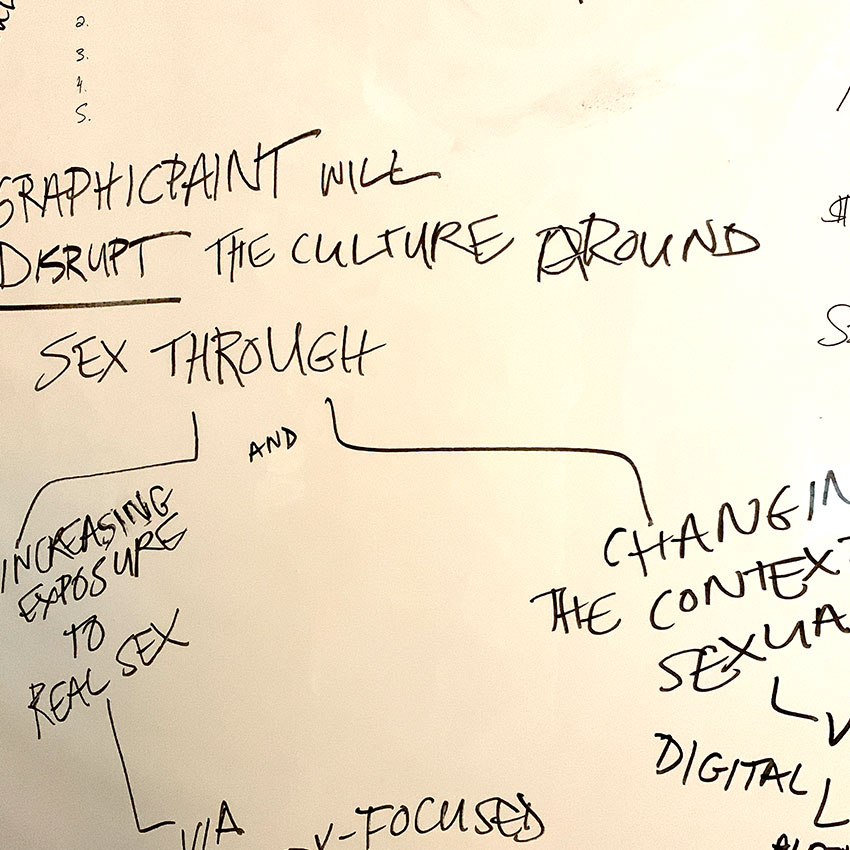 2.
3.
4.
5.
GRAPHICPAINT WILL
DISRUPT THE CULTURE AROUND
SEX THROUGH
AND
INCREASING
EXPOSURE
TO
REAL SEX
VIA
-FOCUSED
CHANGIN
THE CONTEXT
SEXUA
DIGITAL
$